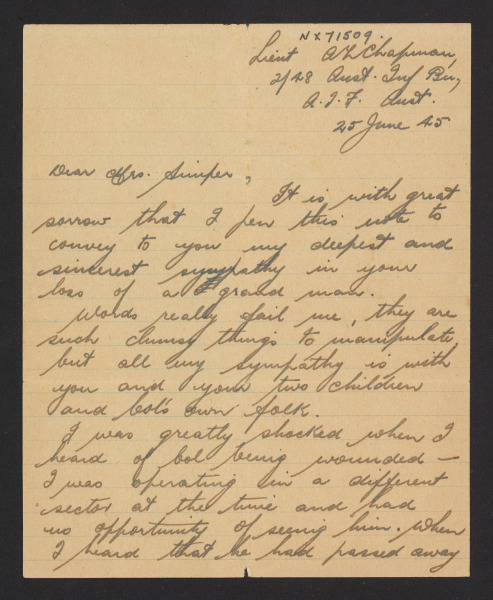 NX71509.
Lieut A L Chapman,
2/48 Aust. Inf Bn,
A.I.F. Aust.
25 June 45
Dear Mrs. Simper,
It is with great
sorrow that I pen this note to
convey to you my deepest and
sincerest sympathy in your
loss of a grand man.
Words really fail me, they are
such clumsy things to manipulate,
but all my sympathy is with
you and your two children
and Col's own folk.
I was greatly shocked when I
heard of Col being wounded —
I was operating in a different
sector at the time and had
no opportunity of seeing him. When
I heard that he had passed away